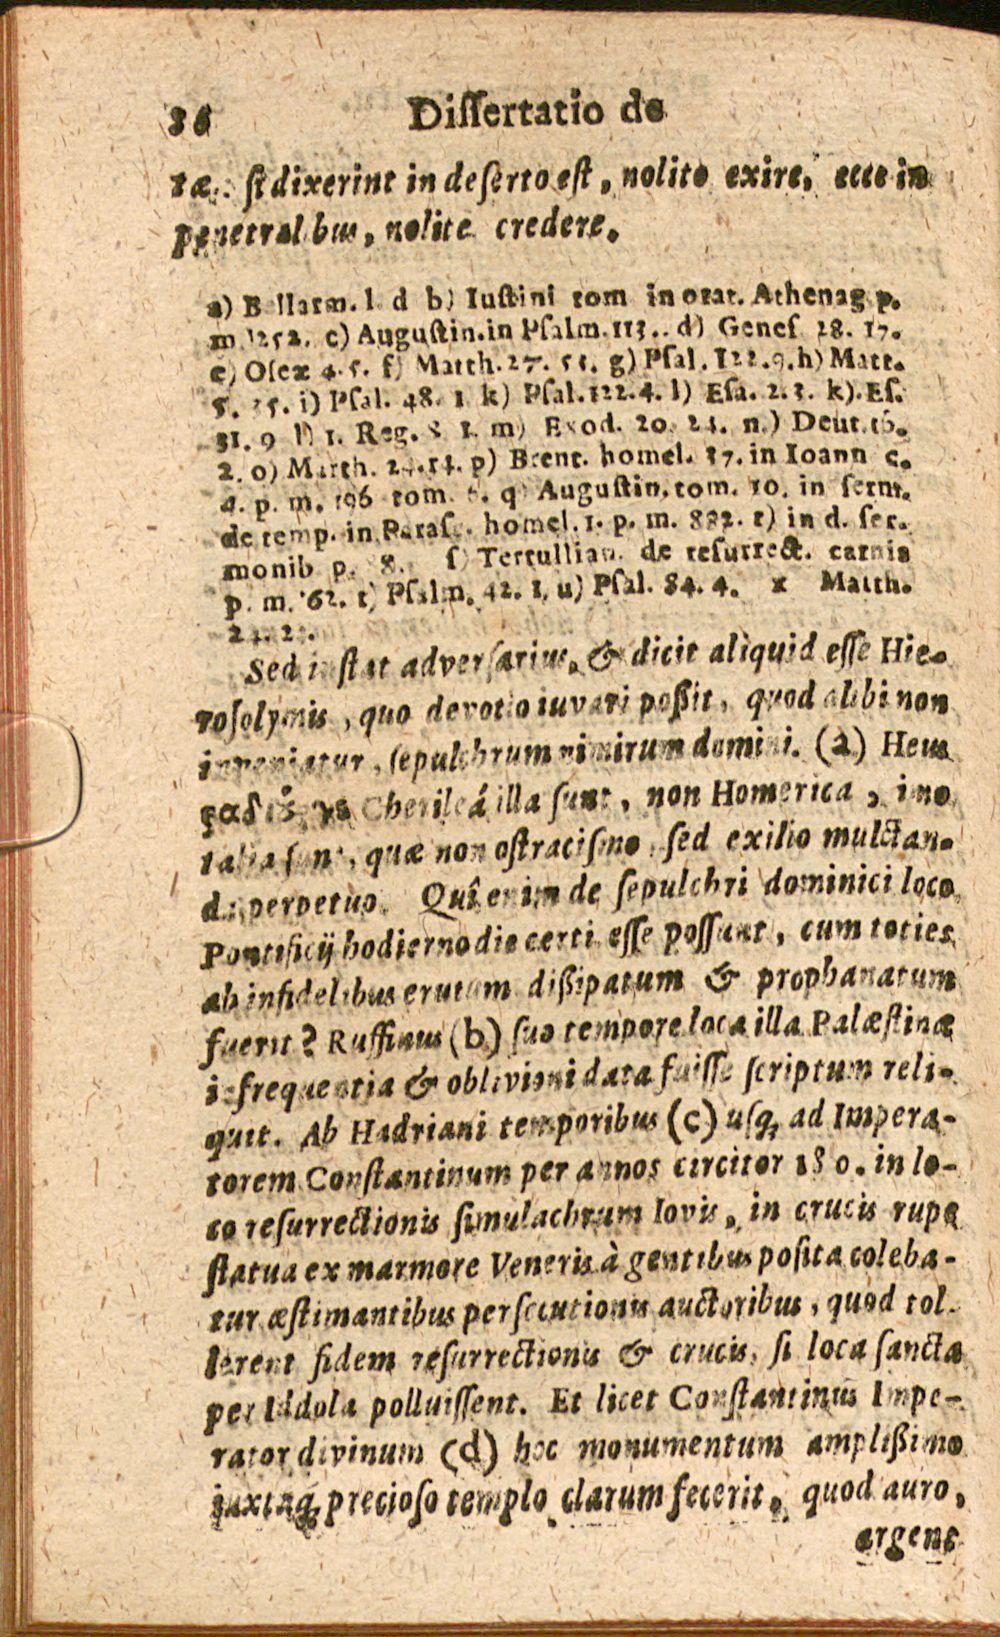 36 Dissertatio de
tæ: si dixerint in deserto est, nolite exire, ecce in
penetralibus, nolite credere.
a) Bellarm. l. d b) Iustini tom in orat. Athenag p.
m 1252. c) Augustin. in Psalm. 113.. d) Genes 28. 17.
e) Osex 4. 5. f) Matth. 27. 51. g) Psal. 122. 9. h) Matt.
5. 35. i) Psal. 48. 1 k) Psal. 122. 4. l) Esa. 2. 3. k). Es.
31. 9 l) 1. Reg. 8 m) Exod. 20. 24. n.) Deut. 16.
2. o) Matth. p) Brent. homel. 37. in Ioann c.
4. p. m. 196 tom. q) Augustin. tom. 10. in serm.
de temp. in Parasc. homel. 1. p. m. 882. r) in d. ser.
monib p. 8. s) Tertullian. de resurrect. carnis
p. m. 62. t) Psalm. 42. 1, u) Psal. 84. 4. x Matth.
Sed instat adversarius, & dicit aliquid esse Hie-
rosolymis, quo devotio iuvari possit, quod alibi non
inveniatur, sepulchrum nimirum domini. (a) Heus
Cherileá illa sunt, non Homerica, imo
talia sunt, quæ non ostracismo, sed exilio mulctan-
da perpetuo. Quî enim de sepulchri dominici loco
Pontificij hodierno die certi esse possunt, cum toties
ab infidelibus erutum dissipatum & prophanatum
fuerit? Ruffinus (b) suo tempore loca illa Palæstinæ
infrequentia & oblivioni data fuisse scriptum reli-
quit. Ab Hadriani temporibus (c) usq; ad Impera-
torem Constantinum per annos circiter 180. in lo-
co resurrectionis simulachrum Iovis, in crucis rupe
statua ex marmore Veneris à gentibus posita coleba-
tur æstimantibus persecutionis auctoribus, quod tol-
lerent fidem resurrectionis & crucis, si loca sancta
per Iddola polluissent. Et licet Constantinus Impe-
rator divinum (d) hoc monumentum amplissimo
iuxtaq; precioso templo clarum fecerit, quod auro,
argent